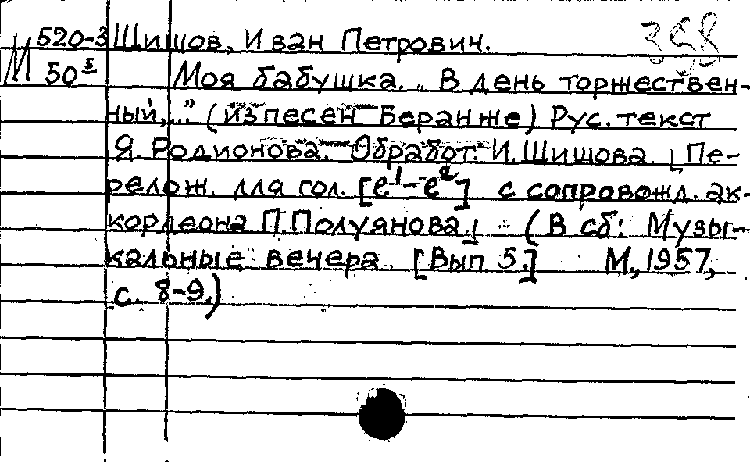 М 520-3 Шишов, Иван Петрович. 358
50⁵ Моя бабушка. „В день торжествен-
ный,.." (из песен Беранже) Рус. текст
Я. Родионова. Обработ. И. Шишова. [Пе-
релож. для гол. [e¹-e²] с сопровожд. ак-
кордеона П. Полуянова.] (В сб: Музы-
кальные вечера. [Вып 5.] М., 1957,
с. 8-9.)